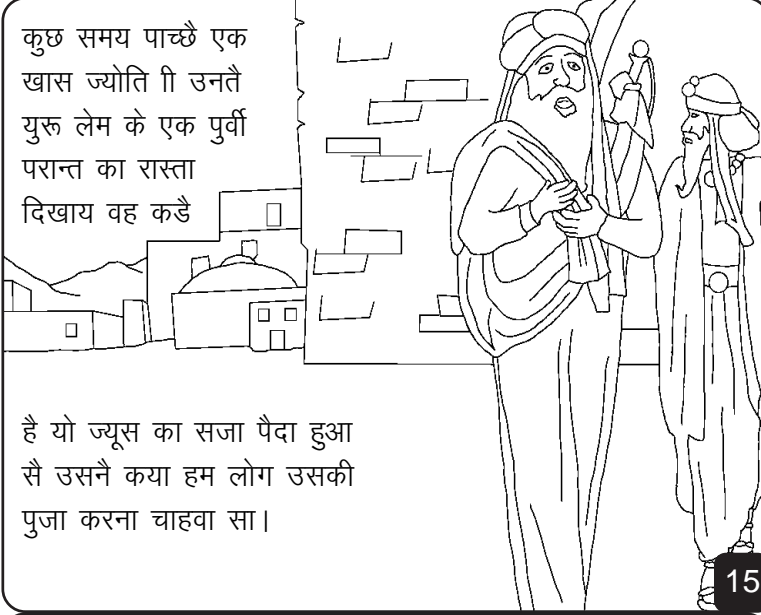 कुछ समय पाच्छै एक
खास ज्योति ाी उनतै
युरू लेम के एक पुर्वी
परान्त का रास्ता
दिखाय वह कडै
है यो ज्यूस का सजा पैदा हुआ
सै उसनै कया हम लोग उसकी
पुजा करना चाहवा सा।
15